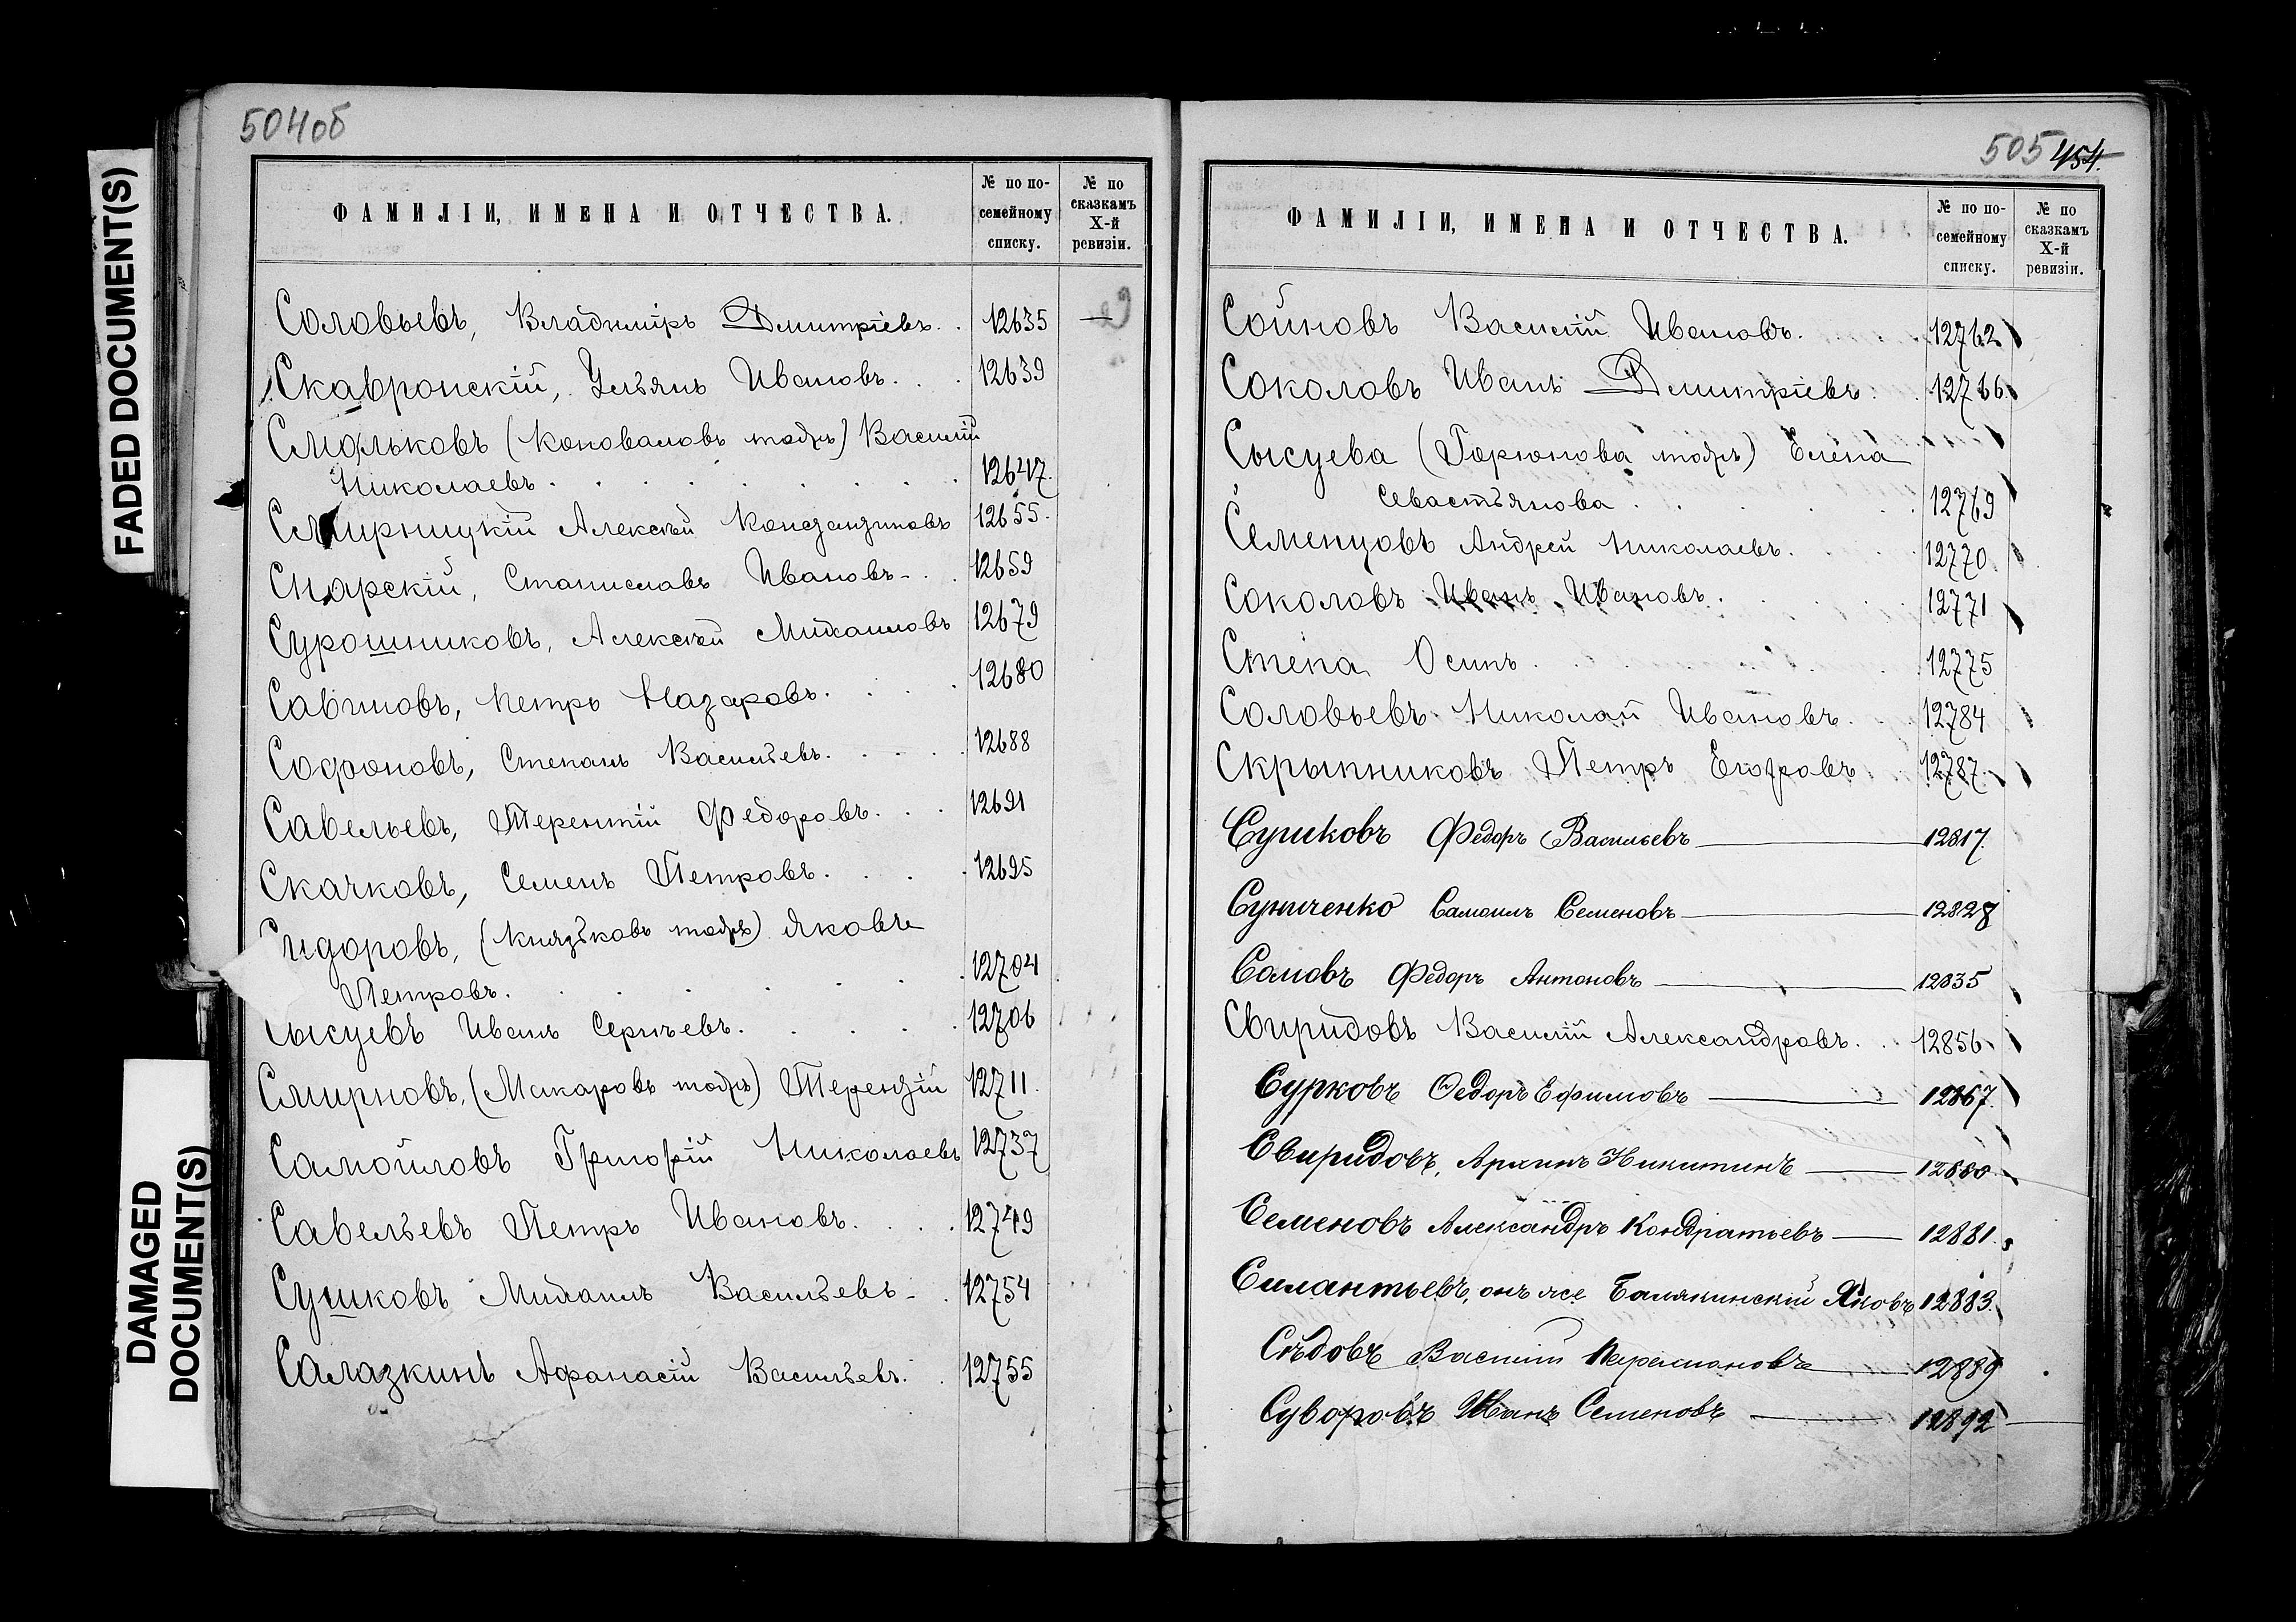 504об
ФАМИЛІИ, ИМЕНА И ОТЧЕСТВА.
№ по по-семейному списку.
№ по сказкамъ X-й ревизіи.
Соловьевъ, Владиміръ Дмитріевъ. . 12635 —
Скавронскій, Ульянъ Ивановъ. . . 12639
Смольковъ (Коноваловъ тожъ) Василій
Николаевъ. . . . . . . . 12647.
Смирницкій Алексѣй Константиновъ 12655.
Снарскій, Станиславъ Ивановъ - . . 12659
Сурошниковъ, Алексѣй Михаиловъ 12679
Савиновъ, Петръ Назаровъ. . . . 12680
Софроновъ, Степанъ Васильевъ. . . . 12688
Савельевъ, Терентій Федоровъ. . . 12691
Скачковъ, Семенъ Петровъ. . . . 12695
Сидоровъ, (Князьковъ тожъ) Яковъ
Петровъ. . . . . . . 12704
Сысуевъ Иванъ Сергѣевъ. . . . . 12706
Смирновъ, (Макаровъ тожъ) Терентій 12711.
Самойловъ Григорій Николаевъ 12737
Савельевъ Петръ Ивановъ. . . . 12749
Сушковъ Михаилъ Васильевъ - . 12754
Салазкинъ Афанасій Васильевъ. . 12755
505 454.
ФАМИЛІИ, ИМЕНА И ОТЧЕСТВА.
№ по по-семейному списку.
№ по сказкамъ X-й ревизіи.
Сойновъ Василій Ивановъ. . . . 12762
Соколовъ Иванъ Дмитріевъ. . . 12766.
Сысуева (Горюнова тожъ) Елена
Севастьянова . . . . . 12769
Семенцовъ Андрей Николаевъ. . . . 12770.
Соколовъ Иванъ Ивановъ. . . . . 12771
Стена Осипъ. . . . . . 12775
Соловьевъ Николай Ивановъ. . . 12784
Скрыпниковъ Петръ Егоровъ . . 12787.
Сушковъ Федоръ Васильевъ — 12817.
Суниченко Самоилъ Семеновъ — 12828
Сомовъ Федоръ Антоновъ — 12835
Свиридовъ Василій Александровъ. . . 12856
Сурковъ Ѳедоръ Ефимовъ — 12867.
Свиридовъ, Архипъ Никитинъ — 12880.
Семеновъ Александръ Кондратьевъ — 12881.
Силантьевъ, онъ же Яковъ 12883.
Сѣдовъ Василій — 12889
Суворовъ Иванъ Семеновъ — 12892
FADED DOCUMENT(S)
DAMAGED
DOCUMENT(S)